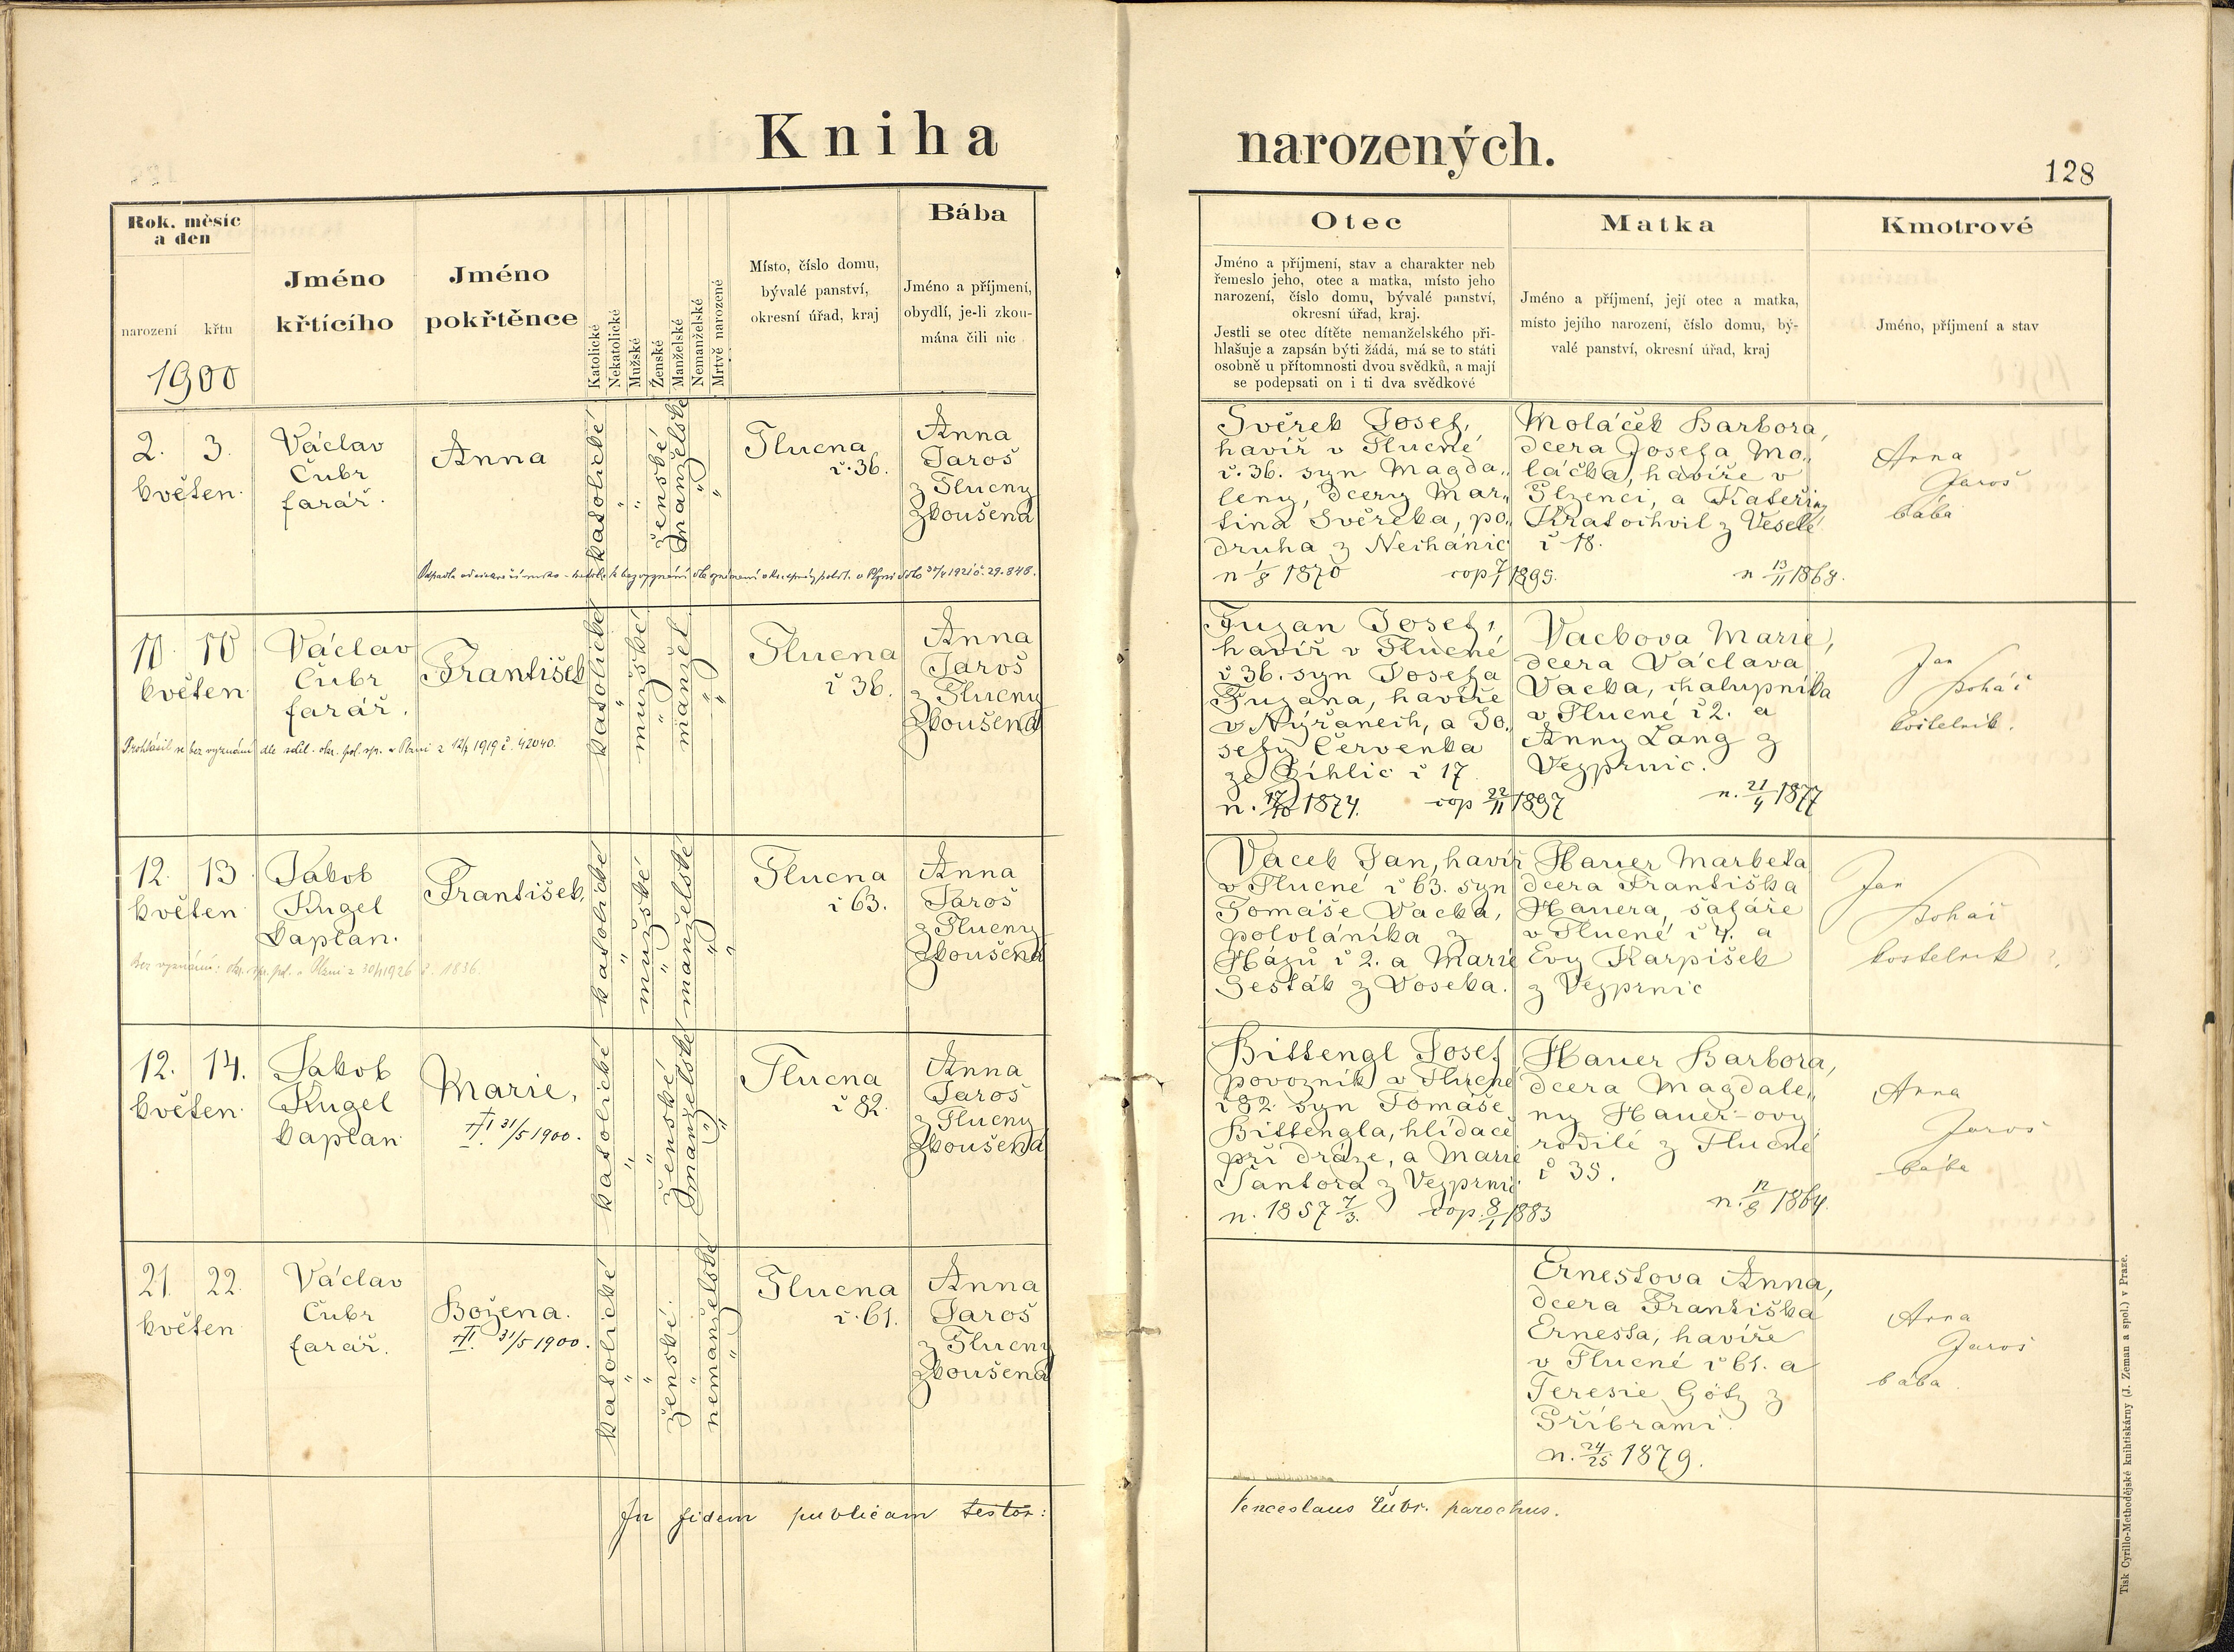 Kniha narozených.
128
Rok, měsíc
a den
narození křtu
1900
Jméno
křtícího
Jméno
pokřtěnce
Katolické
Nekatolické
Mužské
Ženské
Manželské
Nemanželské
Mrtvě narozené
Místo, číslo domu,
bývalé panství,
okresní úřad, kraj
Bába
Jméno a příjmení,
obydlí, je-li zkou-
mána čili nic
Otec
Jméno a příjmení, stav a charakter neb
řemeslo jeho, otec a matka, místo jeho
narození, číslo domu, bývalé panství,
okresní úřad, kraj.
Jestli se otec dítěte nemanželského při-
hlašuje a zapsán býti žádá, má se to státi
osobně u přítomnosti dvou svědků, a mají
se podepsati on i ti dva svědkové
Matka
Jméno a příjmení, její otec a matka,
místo jejího narození, číslo domu, bý-
valé panství, okresní úřad, kraj
Kmotrové
Jméno, příjmení a stav
2. 3.
květen
Václav
Čubr
farář.
Anna
katolické
"
"
ženské
manželské
"
"
Tlucna
č. 36.
Anna
Jaroš
z Tlucny
zkoušená
Svěrek Josef,
havíř v Tlucné
č. 36. syn Magda„
leny, dcery Mar„
tina Svěreka, po„
druha z Nechánic
n 1/8 1870 cop 7/1 1899.
Moláček Barbora,
dcera Josefa Mo„
láčka, havíře v
Plzenci, a Kateřiny
Kratochvil z Veselé
č 18.
n 13/11 1868.
Anna
Jaroš
bába
10. 10
květen
Václav
Čubr
farář.
František
Prohlásil se bez vyznání dle sděl. okr. pol. spr. v Plzni z 12/4 1919 č. 42040.
katolické
"
mužské
"
manžel
"
"
Tlucna
č 36.
Anna
Jaroš
z Tlucny
zkoušená
Fuzan Josef,
havíř v Tlucné
č 36. syn Josefa
Fuzana, havíře
v Nýřanech, a Jo„
sefy Červenka
ze Líhlic č 17
n. 17/10 1874. cop 22/11 1897
Vackova Marie,
dcera Václava
Vacka, chalupníka
v Tlucné č 2. a
Anny Lang z
Vejprnic.
n. 21/4 1877
Jan
Boháč
kostelník.
12. 13.
květen
Jakob
Kugel
kaplan.
František,
Bez vyznání: okr. spr. pol. v Plzni z 30/11926 č. 1836.
katolické
"
mužské
"
manželské
"
"
Tlucna
č 63.
Anna
Jaroš
z Tlucny
zkoušená
Vacek Jan, havíř
v Tlucné č 63. syn
Tomáše Vacka,
pololáníka z
Hájů č 2. a Marie
Šesták z Voseka.
Hauer Marketa
dcera Františka
Hauera, šafáře
v Tlucné č 4. a
Evy Karpíšek
z Vejprnic
Jan
Boháč
kostelník
12. 14.
květen
Jakob
Kugel
kaplan
Marie,
31/5 1900.
katolické
"
"
ženské
manželské
"
"
Tlucna
č 82.
Anna
Jaroš
z Tlucny
zkoušená
Bittengl Josef
povozník v Tlucné
č 82. syn Tomáše
Bittengla, hlídače
při dráze, a Marie
Šantora z Vejprnic.
n. 1857 7/3. cop. 9/1 1883
Hauer Barbora,
dcera Magdale„
ny Hauer-ovy
rodilé z Tlucné
č 35.
n. 12/8 1864.
Anna
Jaroš
bába
21. 22.
květen
Václav
Čubr
farář.
Božena.
31/5 1900.
katolické
"
"
ženské.
"
nemanželské
"
Tlucna
č. 61.
Anna
Jaroš
z Tlucny
zkoušená
Ernestova Anna,
dcera Františka
Ernesta, havíře
v Tlucné č 61. a
Teresie Götz z
Příbrami.
n. 24/25 1879.
Anna
Jaroš
bába
In fidem publicam testor:
Venceslaus Čubr. parochus.
Tisk Cyrillo-Methodějské knihtiskárny (J. Zeman a spol.) v Praze.